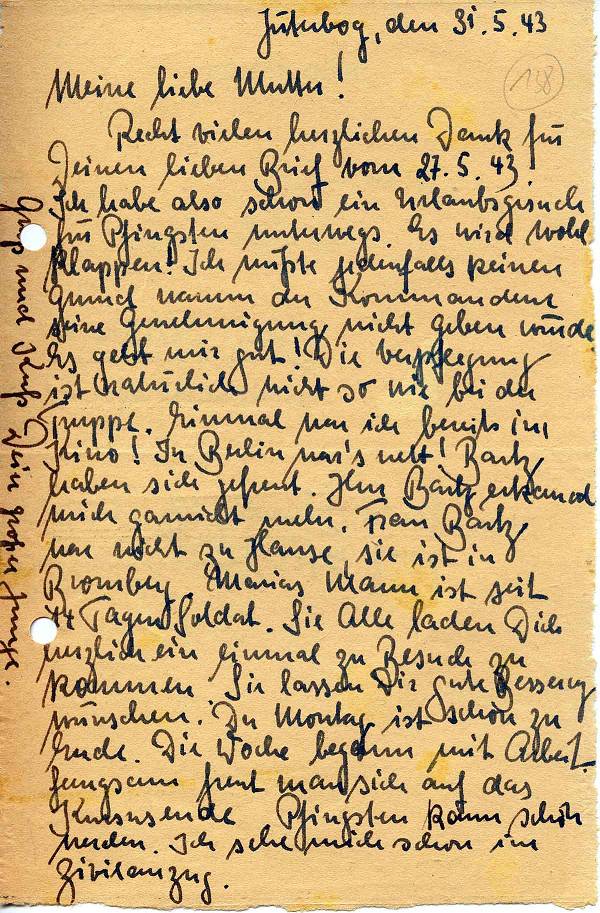 Jüterbog, den 31.5.43
138
Meine liebe Mutter!
Recht vielen herzlichen Dank für
Deinen lieben Brief vom 27.5.43.
Ich habe also schon ein Urlaubsgesuch
für Pfingsten unterwegs. Es wird wohl
klappen! Ich wüßte jedenfalls keinen
Grund warum der Kommandeur
seine Genehmigung nicht geben würde.
Es geht mir gut! Die Verpflegung
ist natürlich nicht so wie bei der
Truppe. Einmal war ich bereits im
Kino! In Berlin war's nett! Bartz
haben sich gefreut. Herr Bartz erkannte
mich garnicht mehr. Frau Bartz
war nicht zu Hause, sie ist in
Bromberg. Mann ist seit
14 Tagen Soldat. Sie Alle laden Dich
herzlich ein einmal zu Besuch zu
kommen. Sie lassen Dir gute Besserung
wünschen. Der Montag ist schon zu
Ende. Die Woche begann mit Arbeit.
Langsam freut man sich auf das
Kursusende. Pfingsten kann schön
werden. Ich sehe mich schon im
Zivilanzug.
Gruß und Kuß Dein großer Junge.